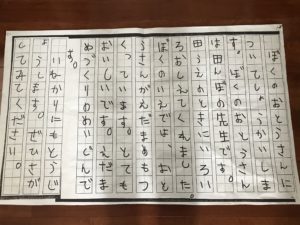 ぼくのおとうさんに
ついてしょうかいしま
す。ぼくのおとうさん
は田んぼの先生です。
田うえのときにいろい
ろおしえてくれました
ぼくのいえでは、おと
うさんがえだまめもつ
くっています。とても
おいしいです。えだま
めづくりのめいじんで
す。
いねかりにもとうじ
ょうします。ぜひさが
してみてください。